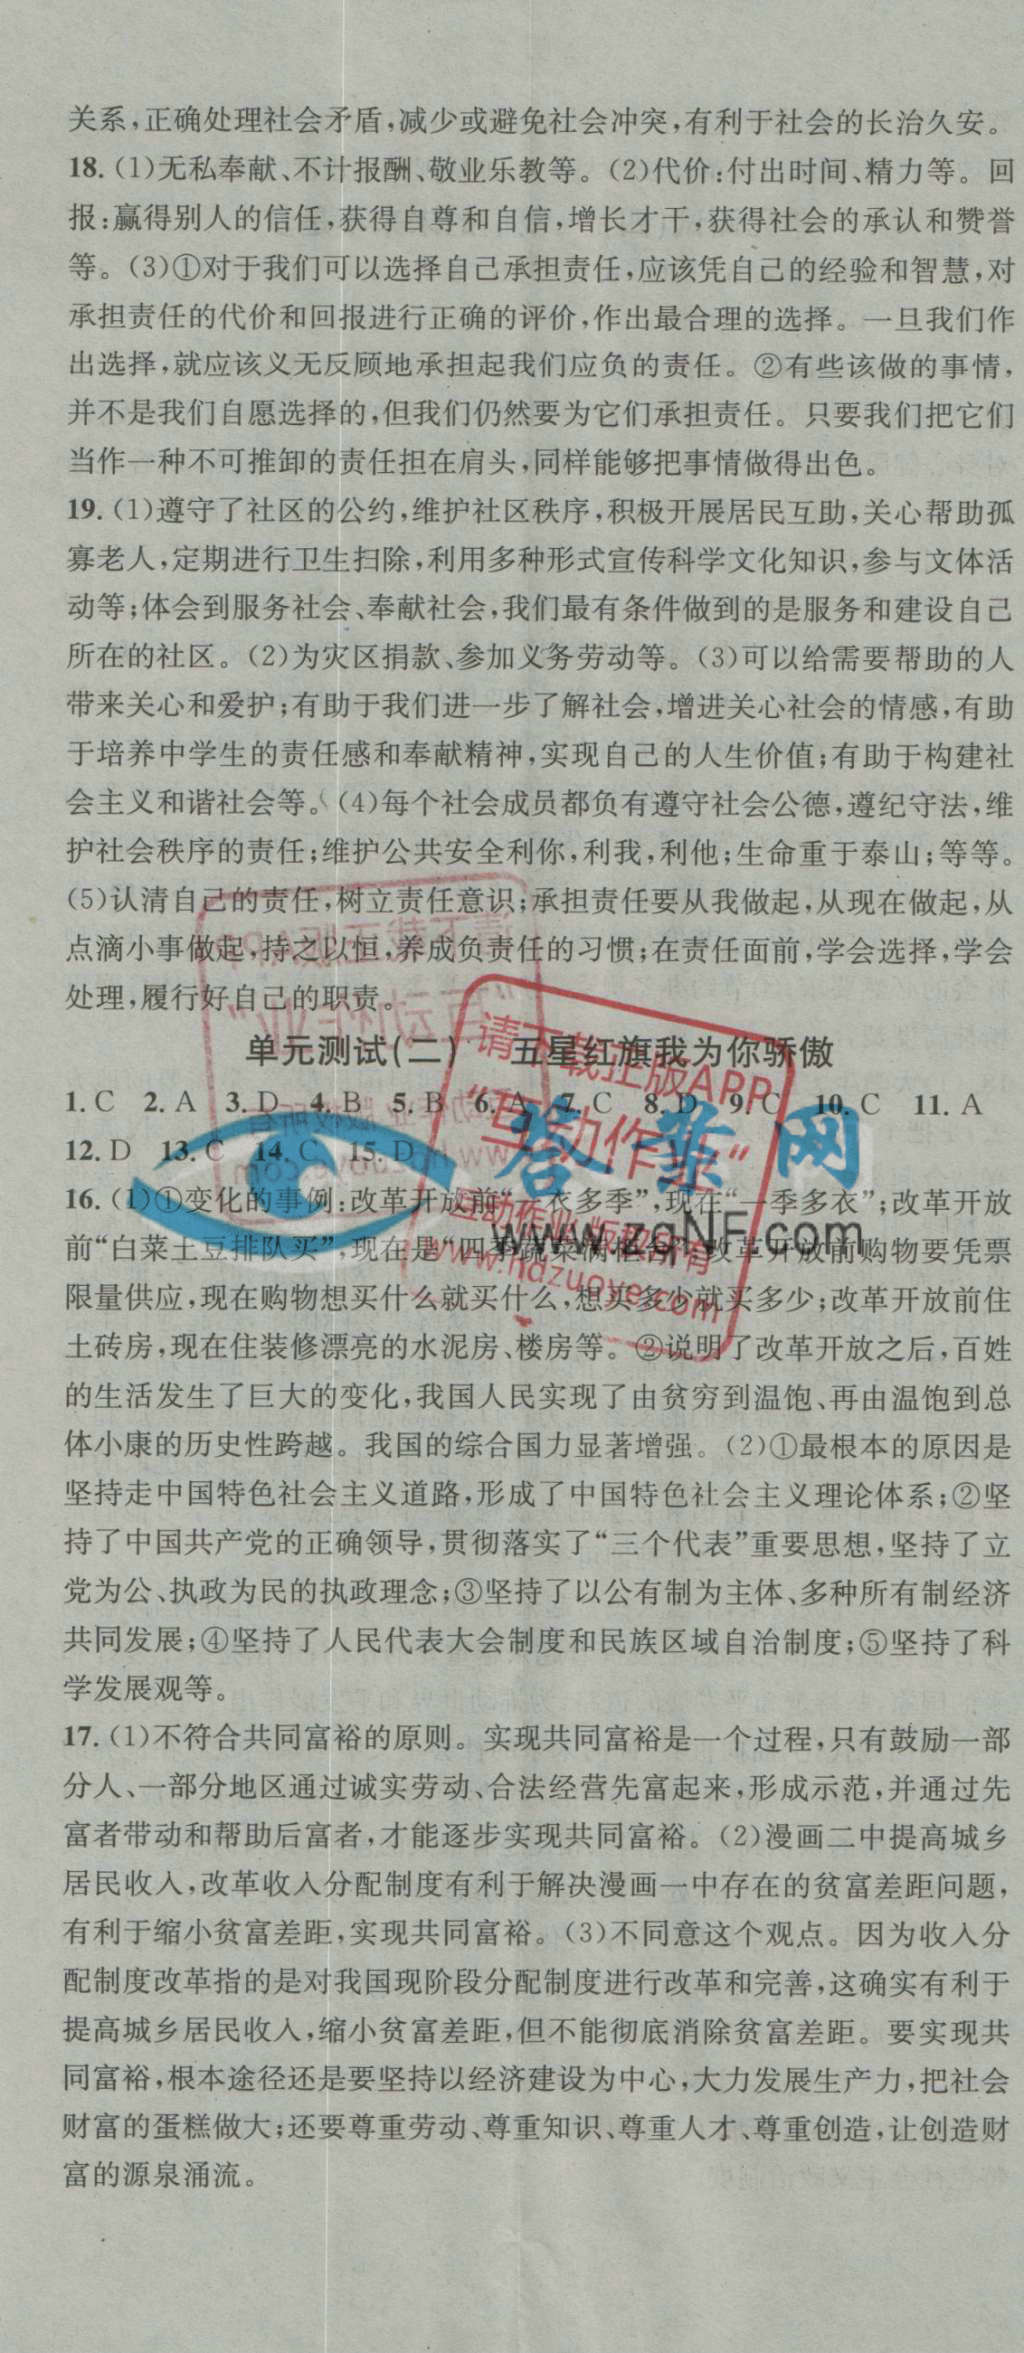 关系,正确处理社会矛盾,减少或避免社会冲突,有利于社会的长治久安。
18. (1)无私奉献、不计报酬、敬业乐教等。(2)代价:付出时间、精力等。回
报:赢得别人的信任,获得自尊和自信,增长才干,获得社会的承认和赞誉
等。(3)①对于我们可以选择自己承担责任,应该凭自己的经验和智慧,对
承担责任的代价和回报进行正确的评价,作出最合理的选择。一旦我们作
出选择,就应该义无反顾地承担起我们应负的责任。②有些该做的事情,
并不是我们自愿选择的,但我们仍然要为它们承担责任。只要我们把它们
当作一种不可推卸的责任担在肩头,同样能够把事情做得出色。
19. (1)遵守了社区的公约,维护社区秩序,积极开展居民互助,关心帮助孤
寡老人,定期进行卫生扫除,利用多种形式宣传科学文化知识,参与文体活
动等;体会到服务社会、奉献社会,我们最有条件做到的是服务和建设自己
所在的社区。(2)为灾区捐款、参加义务劳动等。(3)可以给需要帮助的人
带来关心和爱护;有助于我们进一步了解社会,增进关心社会的情感,有助
于培养中学生的责任感和奉献精神,实现自己的人生价值;有助于构建社
会主义和谐社会等。(4)每个社会成员都负有遵守社会公德,遵纪守法,维
护社会秩序的责任;维护公共安全利你,利我,利他;生命重于泰山;等等。
(5)认清自己的责任,树立责任意识;承担责任要从我做起,从现在做起,从
点滴小事做起,持之以恒,养成负责任的习惯;在责任面前,学会选择,学会
处理,履行好自己的职责。
单元测试(二) 五星红旗我为你骄傲
1. C 2. A 3. D 4. B 5. B 6. A 7. C 8. D 9. C 10. C 11. A
12. D 13. C 14. C 15. D
16. (1)①变化的事例:改革开放前“一衣多季”,现在“一季多衣”;改革开放
前“白菜土豆排队买”,现在是“四季蔬菜满柜台”;改革开放前购物要凭票
限量供应,现在购物想买什么就买什么,想买多少就买多少;改革开放前住
土砖房,现在住装修漂亮的水泥房、楼房等。②说明了改革开放之后,百姓
的生活发生了巨大的变化,我国人民实现了由贫穷到温饱、再由温饱到总
体小康的历史性跨越。我国的综合国力显著增强。(2)①最根本的原因是
坚持走中国特色社会主义道路,形成了中国特色社会主义理论体系;②坚
持了中国共产党的正确领导,贯彻落实了“三个代表”重要思想,坚持了立
党为公、执政为民的执政理念;③坚持了以公有制为主体、多种所有制经济
共同发展;④坚持了人民代表大会制度和民族区域自治制度;⑤坚持了科
学发展观等。
17. (1)不符合共同富裕的原则。实现共同富裕是一个过程,只有鼓励一部
分人、一部分地区通过诚实劳动、合法经营先富起来,形成示范,并通过先
富者带动和帮助后富者,才能逐步实现共同富裕。(2)漫画二中提高城乡
居民收入,改革收入分配制度有利于解决漫画一中存在的贫富差距问题,
有利于缩小贫富差距,实现共同富裕。(3)不同意这个观点。因为收入分
配制度改革指的是对我国现阶段分配制度进行改革和完善,这确实有利于
提高城乡居民收入,缩小贫富差距,但不能彻底消除贫富差距。要实现共
同富裕,根本途径还是要坚持以经济建设为中心,大力发展生产力,把社会
财富的蛋糕做大;还要尊重劳动、尊重知识、尊重人才、尊重创造,让创造财
富的源泉涌流。
请下载正版APP
“互动作业”
互动作业 版权所有
www.hdzuoye.com
答案网
www.zqNF.com